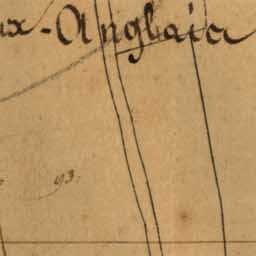 ux-Anglais
93.